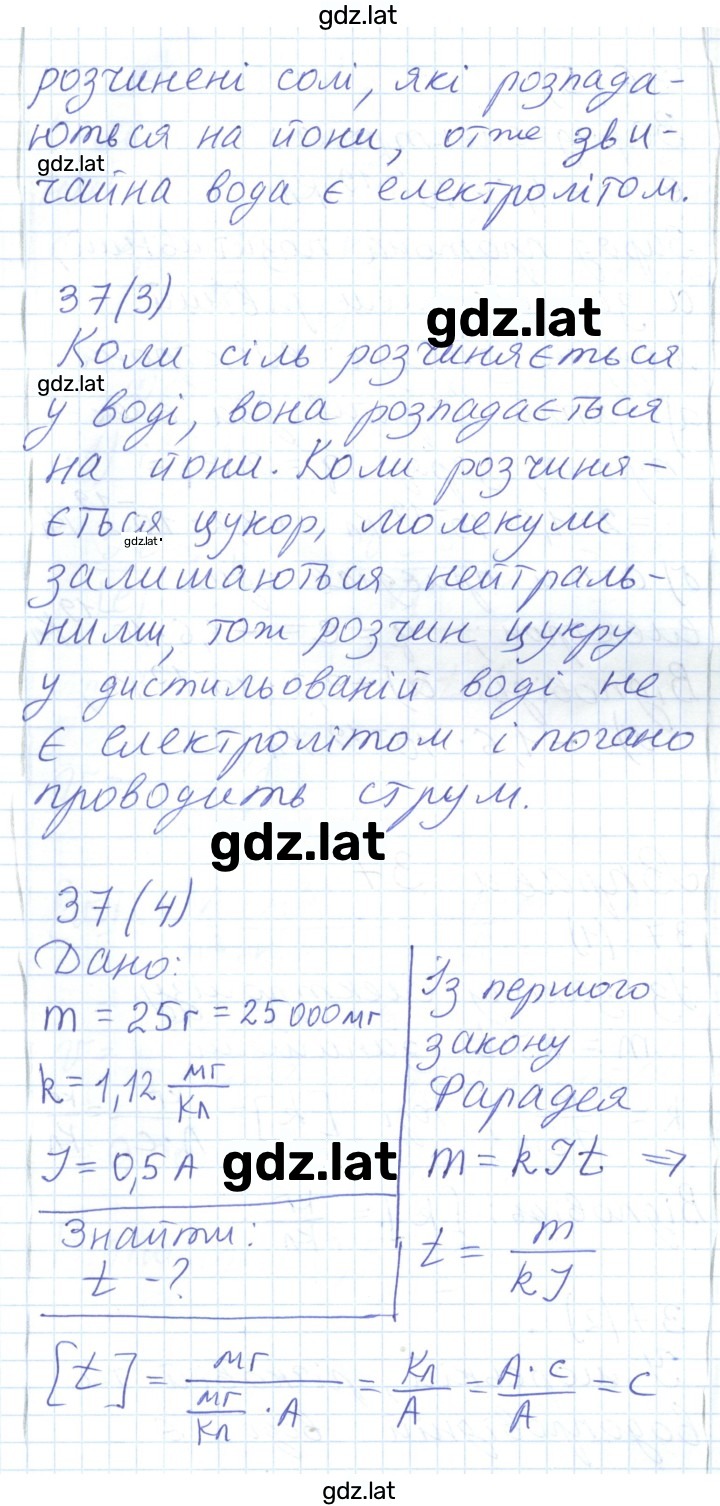 gdz.lat
розчинені солі, які розпада-
ються на йони, отже зви-
gdz.lat
чайна вода є електролітом.
37(3)
gdz.lat
Коли сіль розчиняється
gdz.lat
у воді, вона розпадається
на йони. Коли розчиня-
ється цукор, молекули
gdz.lat
залишаються нейтраль-
ними, тож розчин цукру
у дистильованій воді не
є електролітом і погано
проводить струм.
gdz.lat
37(4)
Дано:
m = 25г = 25000мг
k = 1,12 мг/Кл
I = 0,5 А
gdz.lat
Знайти:
t - ?
Із першого
закону
Фарадея
m = kIt ⇒
t = m/kI
[t] = мг/(мг/Кл · А) = Кл/А = А·с/А = с
gdz.lat